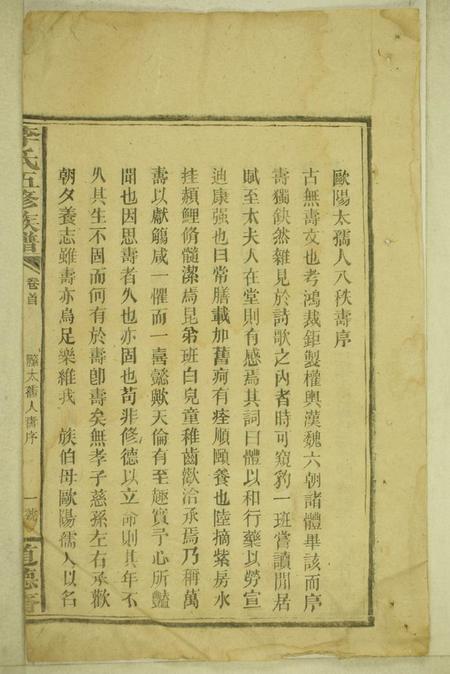 歐陽太孺人八秩壽序
古無壽文也考鴻裁鉅製權輿漢魏六朝諸體畢該而序
壽獨缺然雜見於詩歌之內者時可窺豹一班嘗讀閒居
賦至太夫人在堂則有感焉其詞曰體以和行藥以勞宣
迪康強也曰常膳載加舊痾有痊順頤養也陸摘紫房水
挂赬鯉脩髓潔焉昆弟班白兒童稚齒歡洽承焉乃稱萬
壽以獻觴咸一懼而一喜懿歟天倫有至趣實予心所豔
聞也因思壽者久也亦固也苟非修德以立命則其年不
久其生不固而何有於壽卽壽矣無孝子慈孫左右承歡
朝夕養志雖壽亦烏足樂維我 族伯母歐陽孺人以名
李氏五修族譜
卷首
太孺人壽序
一
道德堂